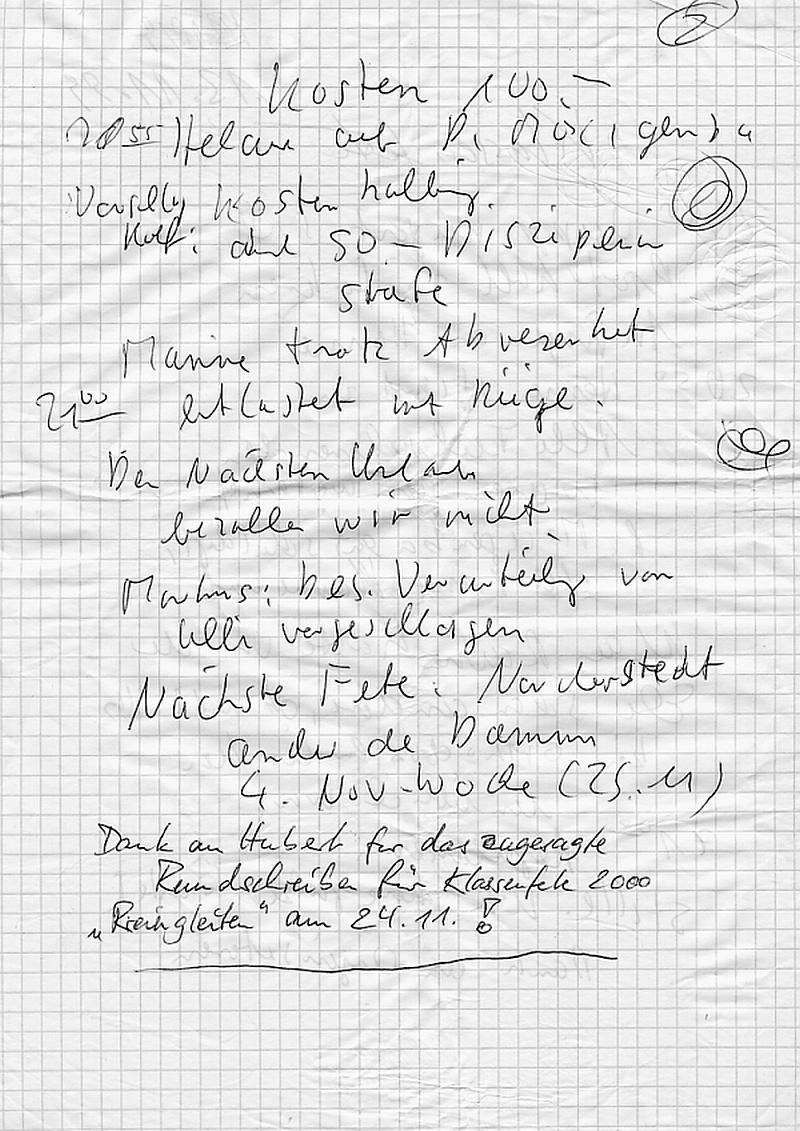 2
Kosten 100.–
20 55 Helau auf D.
Vorschlag Kosten halbig.
Rolf: auch 50.– Disziplin
strafe
Marine trotz Abwesenheit
21 00 entlastet mit Rüge.
Den Nächsten Urlaub
bezahlen wir nicht
Markus: bes. Verurteilg von
Ulli vorgeschlagen
Nächste Fete: Norderstedt
an der de Damm
4. Nov-Woche (25.11)
Dank an Hubert für das zugesagte
Rundschreiben für Klassenfete 2000
„Reingleiten“ am 24.11.!